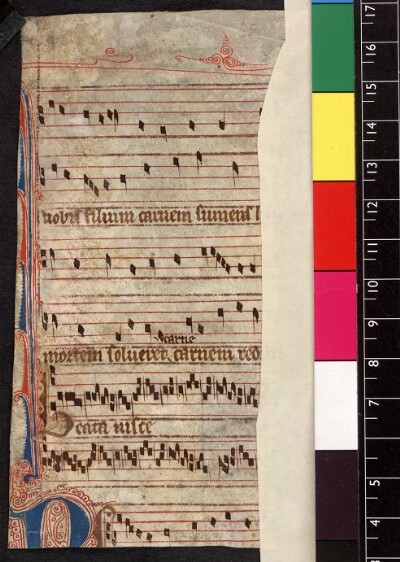 nobis filium carnem sumens
carne
mortem solveret carnem red
Beata visce
17
16
15
14
13
12
11
10
9
8
7
6
5
4